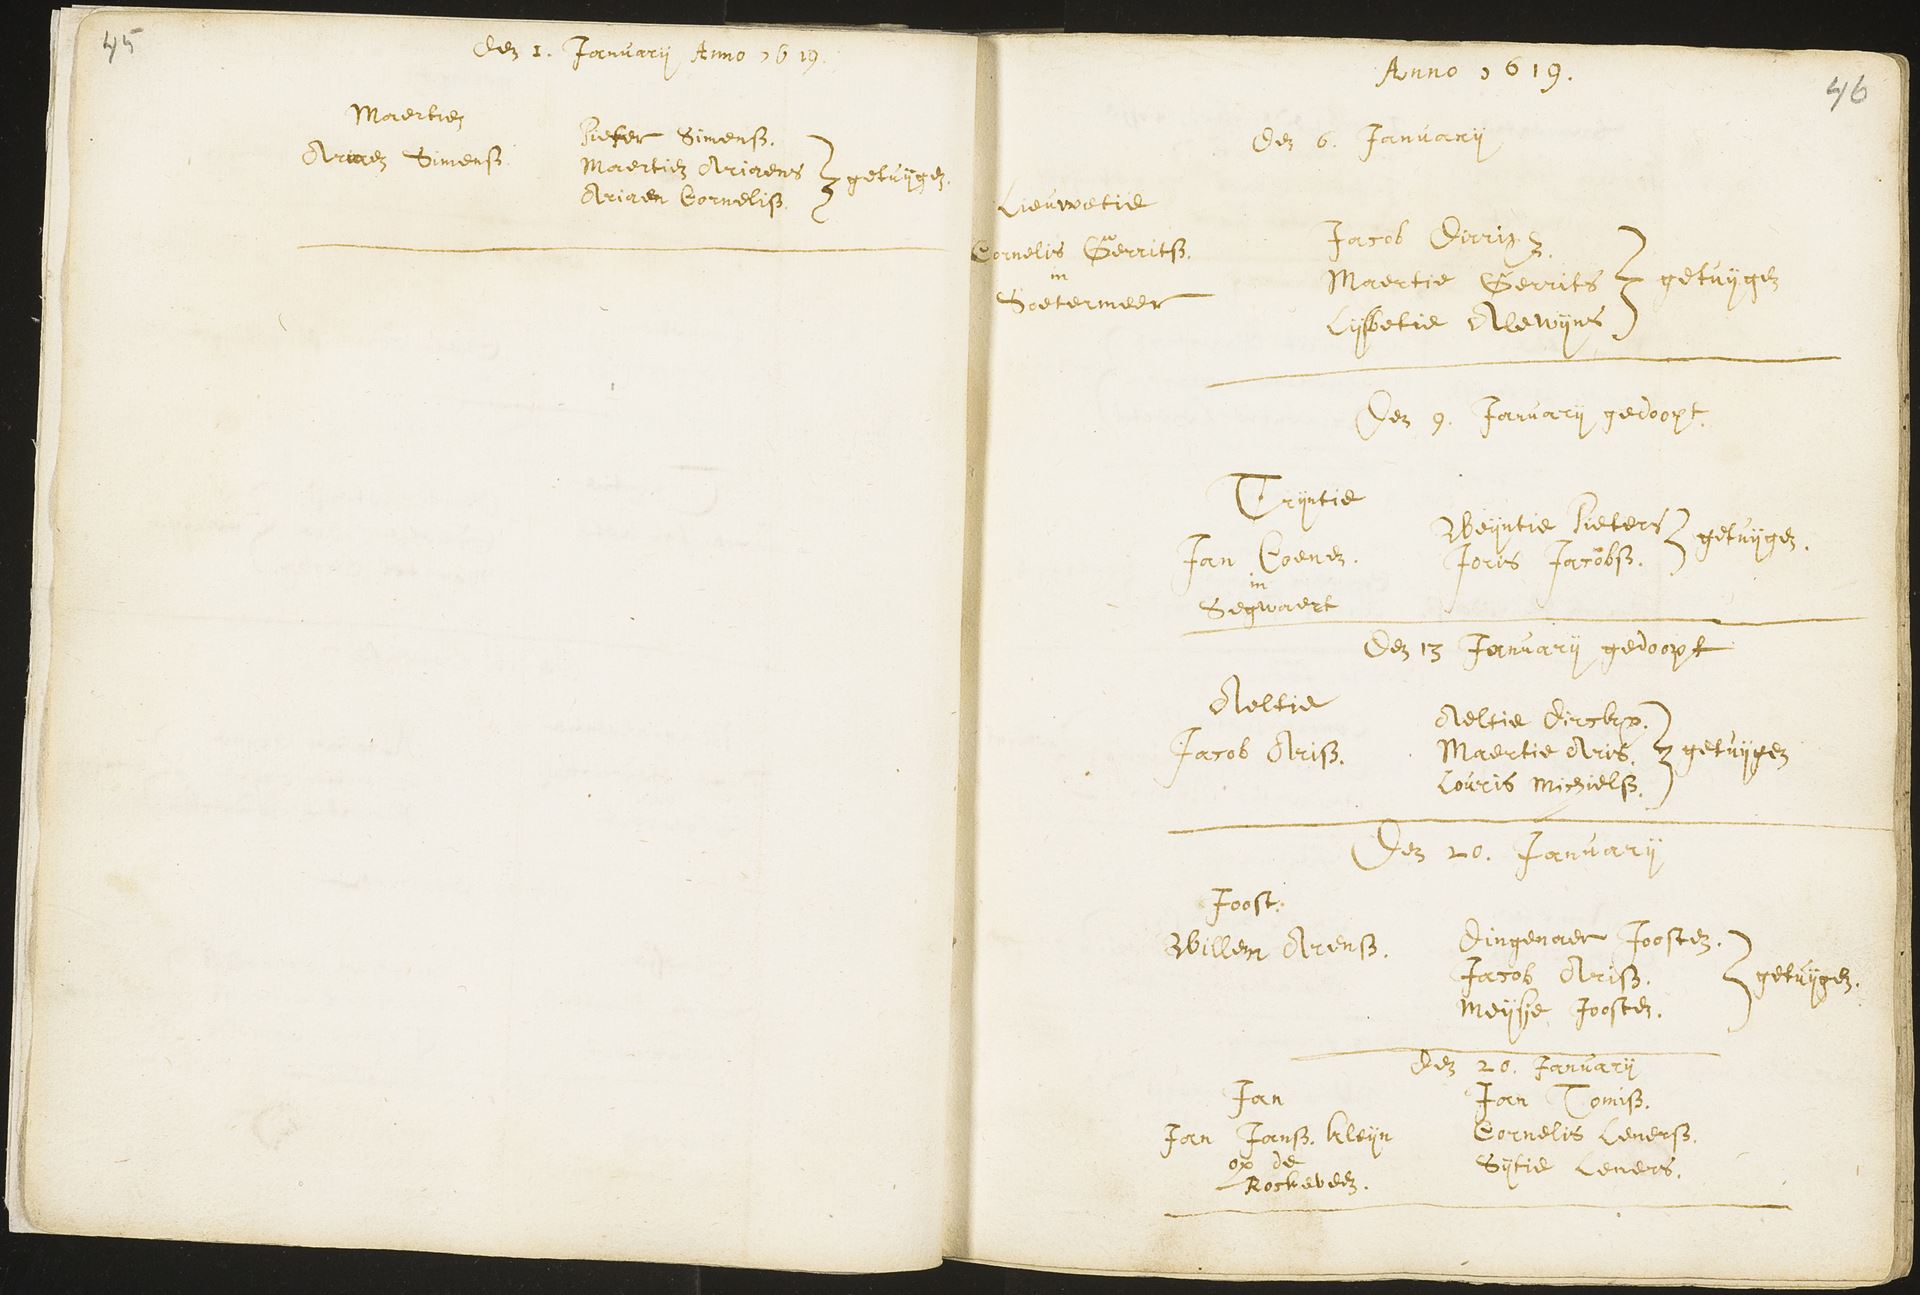 45
Den 1. Januarij Anno 1619.
Maertien
Ariaen Simensz
Pieter Simensz.
Maertien Ariaens
Ariaen Cornelisz.
getuijgen.
46
Anno 1619.
Den 6. Januarij
Lieuwetie
Cornelis Gerritsz.
in
Soetermeer
Jacob Dirrixz.
Maertie Gerrits
Lijsbetie Alewijns
getuijgen
Den 9. Januarij gedoopt.
Trijntie
Jan Coenen.
in
Segwaert
Weijntie Pieters
Joris Jacobsz.
getuijgen.
Den 13 Januarij gedoopt
Aeltie
Jacob Arisz.
Aeltie Dirckx.
Maertie Aris.
Louris Michielsz.
getuijgen
Den 20. Januarij
Joost.
Willem Arensz.
Dingenaer Joosten.
Jacob Arisz.
Meijsje Joosten.
getuijgen.
Den 20. Januarij
Jan
Jan Jansz. kleijn
op de
Rockeveen.
Jan Tomisz.
Cornelis Lenersz.
Sijtie Leners.